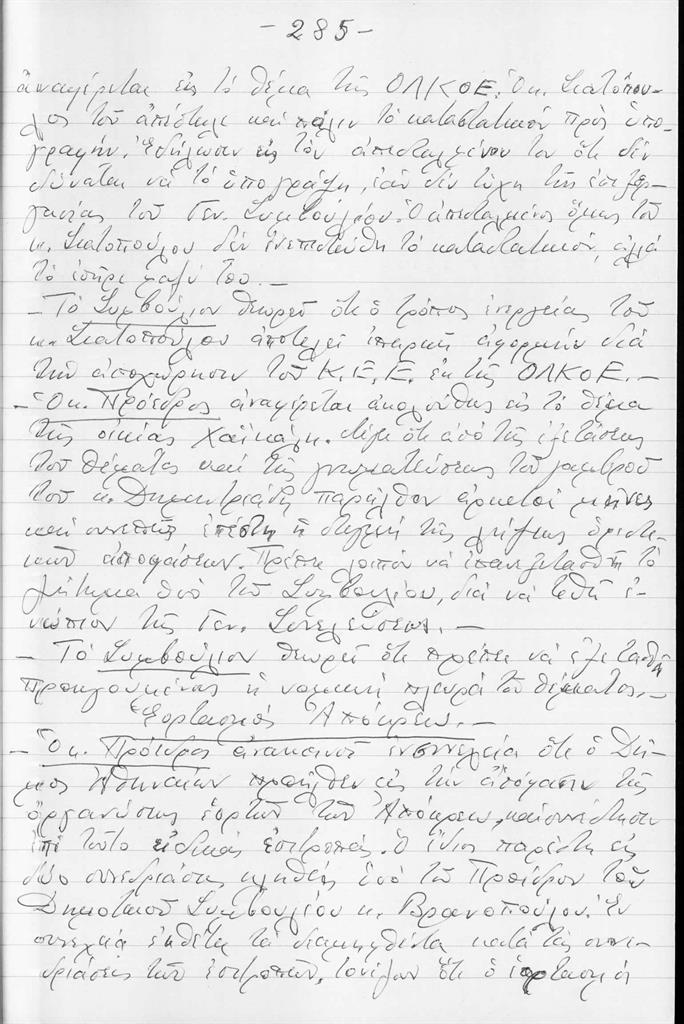 - 285 -
ἀναφέρεται εἰς τό θέμα τῆς ΟΛΚΟΕ. Ὁ κ. Σκατόπου-
λος τοῦ ἀπέστειλε καί πάλιν τό καταστατικόν πρός ὑπο-
γραφήν. Ἐδήλωσεν εἰς τόν ἀπεσταλμένον του ὅτι δέν
δύναται νά τό ὑπογράψῃ, ἐάν δέν τύχῃ τῆς
τοῦ Γεν. Συμβουλίου. Ὁ ἀπεσταλμένος ὅμως τοῦ
κ. Σκατοπούλου δέν ἐνεπιστεύθη τό καταστατικόν, ἀλλά
τό ἐπῆρε μαζύ του. -
- Τό Συμβούλιον θεωρεῖ ὅτι ὁ τρόπος ἐνεργείας τοῦ
κ. Σκατοπούλου ἀποτελεῖ ἐπαρκῆ ἀφορμήν διά
τήν ἀποχώρησιν τοῦ Κ.Ε.Ε. ἐκ τῆς ΟΛΚΟΕ. -
- Ὁ κ. Πρόεδρος ἀναφέρεται ἀκολούθως εἰς τό θέμα
τῆς οἰκίας Χαϊκάλη. Λέγει ὅτι ἀπό τῆς ἐξετάσεως
τοῦ θέματος καί τῆς γνωματεύσεως τοῦ γαμβροῦ
τοῦ κ. Δημητριάδη παρῆλθον ἀρκετοί μῆνες
καί συνεπῶς ἐπέστη ἡ στιγμή τῆς λήψεως ὁριστι-
κῶν ἀποφάσεων. Πρέπει λοιπόν νά ἐπανεξετασθῇ τό
ζήτημα ὑπό τοῦ Συμβουλίου, διά νά τεθῇ ἐ-
νώπιον τῆς Γεν. Συνελεύσεως. -
- Τό Συμβούλιον θεωρεῖ ὅτι πρέπει νά ἐξετασθῇ
προηγουμένως ἡ νομική πλευρά τοῦ θέματος. -
Ἑορτασμός Ἀπόκρεω. -
- Ὁ κ. Πρόεδρος ἀνακοινοῖ ἐν συνεχείᾳ ὅτι ὁ Δῆ-
μος Ἀθηναίων προῆλθεν εἰς τήν ἀπόφασιν τῆς
ὀργανώσεως ἑορτῶν τῶν Ἀπόκρεω, καί συνέστησεν
ἐπί τούτῳ εἰδικάς ἐπιτροπάς. Ὁ ἴδιος παρέστη εἰς
δύο συνεδριάσεις κληθείς ὑπό τοῦ Προέδρου τοῦ
Δημοτικοῦ Συμβουλίου κ. Βρανοπούλου. Ἐν
συνεχείᾳ ἐκθέτει τά διαμειφθέντα κατά τάς συνε-
δριάσεις τῶν ἐπιτροπῶν, τονίζων ὅτι ὁ ἑορτασμός